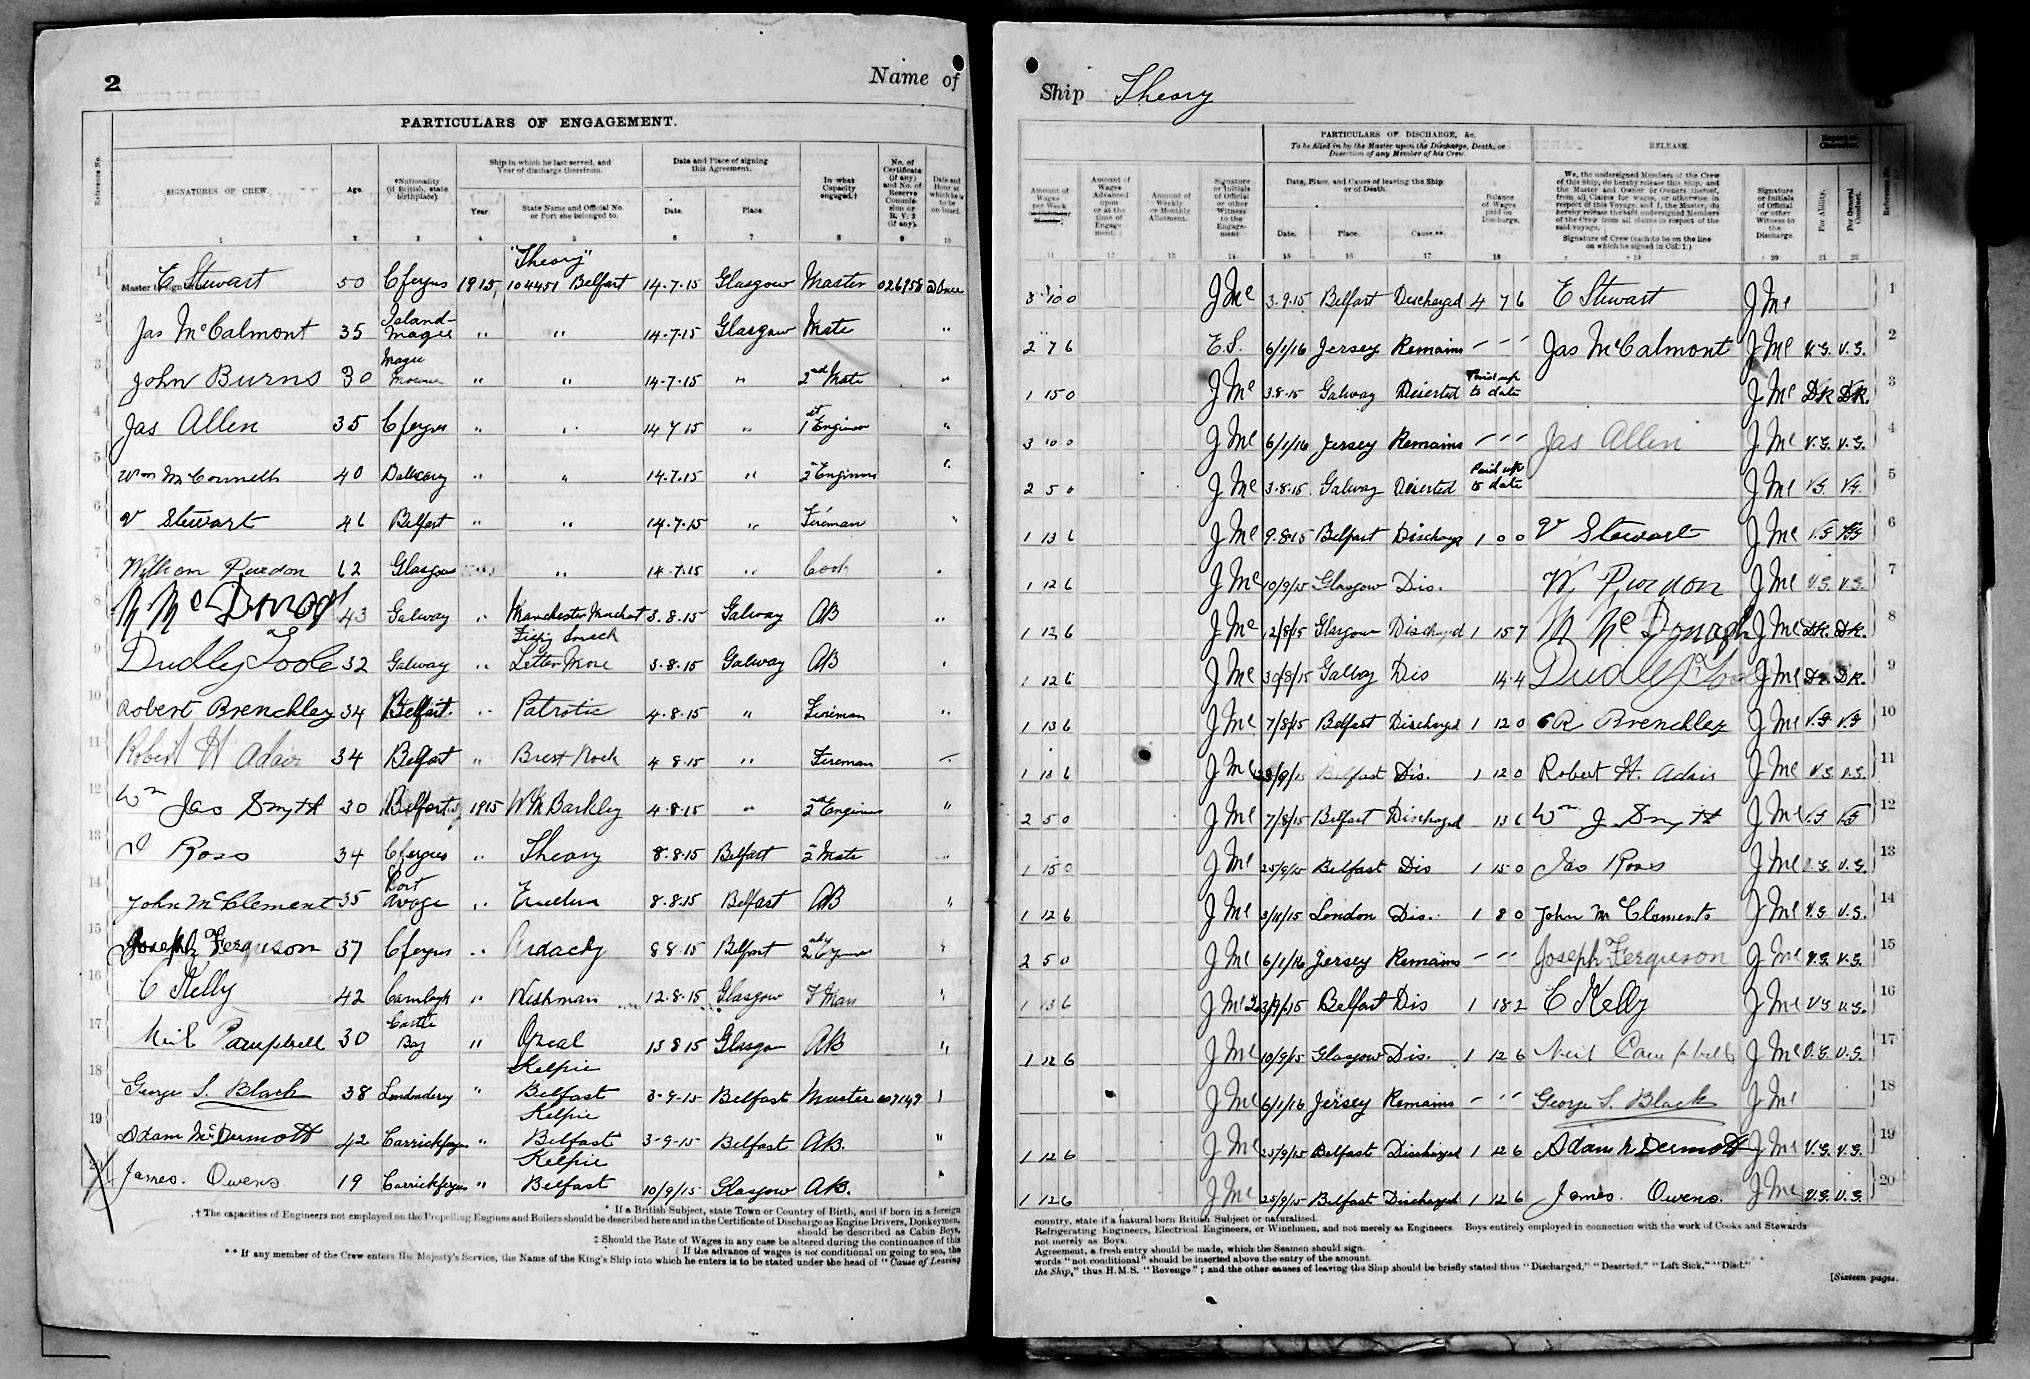 2
Name of
PARTICULARS OF ENGAGEMENT.
Reference No.
SIGNATURES OF CREW.
Age.
*Nationality (if British, state birthplace).
Ship in which he last served, and Year of discharge therefrom.
Year.
State Name and Official No. or Port she belonged to.
Date and Place of signing this Agreement.
Date.
Place.
In what Capacity engaged.†
No. of Certificate (if any) and No. of Reserve Commission or R.V.2 (if any).
Date and Hour at which he is to be on board.
1 2 3 4 5 6 7 8 9 10
"Theory"
1 E Stewart 50 Cfergus 1915 104451 Belfast 14.7.15 Glasgow Master 026958 at Once
2 Jas McCalmont 35 Island-magee " " 14.7.15 Glasgow Mate "
3 John Burns 30 Magee " " 14.7.15 " 2nd Mate "
4 Jas Allen 35 Cfergus " " 14 7 15 " 1st Engineer "
5 Wm McConnell 40 " " 14.7.15 " 2 Engineer "
6 W Stewart 46 Belfast " " 14.7.15 " Fireman "
7 William Purdon 62 Glasgow " 14.7.15 " Cook "
8 M McDonagh 43 Galway " Manchester Merchant 3.8.15 Galway AB "
9 Dudley Toole 32 Galway " Fishing Smack Letter More 3.8.15 Galway AB "
10 Robert Brenchley 34 Belfast " Patrotic 4.8.15 " Fireman "
11 Robert H Adair 34 Belfast " Brest Rock 4 8.15 " Fireman
12 Wm Jas Smyth 30 Belfast 1915 W M Barkley 4.8.15 " 2nd Engineer "
13 J Ross 34 Cfergus " Theory 8.8.15 Belfast 2 Mate "
14 John McClement 35 Port avogie " 8.8.15 Belfast AB "
15 Joseph Ferguson 37 Cfergus " 8 8.15 Belfast 2nd "
16 C Kelly 42 " Wishman 12.8.15 Glasgow F Man "
17 Neil Campbell 30 Castle Bay " 15 8 15 Glasgow AB "
18 George S. Black 38 Londonderry " Kelpie Belfast 3-9-15 Belfast Master "
19 Adam McDermott 42 Carrickfergus " Kelpie Belfast 3-9-15 Belfast AB. "
James. Owens 19 Carrickfergus " Kelpie Belfast 10/9/15 Glasgow AB. "
* If a British Subject, state Town or Country of Birth, and if born in a foreign
† The capacities of Engineers not employed on the Propelling Engines and Boilers should be described here and in the Certificate of Discharge as Engine Drivers, Donkeymen,
should be described as Cabin Boys,
‡ Should the Rate of Wages in any case be altered during the continuance of this
If the advance of wages is not conditional on going to sea, the
** If any member of the Crew enters His Majesty's Service, the Name of the King's Ship into which he enters is to be stated under the head of "Cause of Leaving
Ship Theory
PARTICULARS OF DISCHARGE, &c.
To be filled in by the Master upon the Discharge, Death, or Desertion of any Member of his Crew.
RELEASE.
Report of Character.
Reference No.
Amount of Wages per Week
Amount of Wages Advanced upon or at the time of Engagement.
Amount of Weekly or Monthly Allotment.
Signature or Initials of Official or other Witness to the Engagement.
Date, Place, and Cause of leaving the Ship or of Death.
Date.
Place.
Cause**.
Balance of Wages paid on Discharge.
We, the undersigned Members of the Crew of this Ship, do hereby release this Ship, and the Master and Owner or Owners thereof, from all Claims for wages, or otherwise in respect of this Voyage, and I, the Master, do hereby release the said undersigned Members of the Crew from all claims in respect of the said voyage.
Signature of Crew (each to be on the line on which he signed in Col: 1.)
Signature or Initials of Official or other Witness to the Discharge.
For Ability.
For General Conduct.
11 12 13 14 15 16 17 18 19 20 21 22
3 10 0 J Mc 3.9.15 Belfast Discharged 4 7 6 E Stewart J Mc 1
2 7 6 E.S. 6/1/16 Jersey Remains - - - Jas McCalmont J Mc V.G. V.G. 2
1 15 0 J Mc 3.8.15 Galway Deserted Paid up to date J Mc DR DR. 3
3 0 0 J Mc 6/1/16 Jersey Remains - - - Jas Allen J Mc V.G. V.G. 4
2 5 0 J Mc 3.8.15. Galway Deserted Paid up to date J Mc VG. VG. 5
1 13 6 J Mc 9.8.15 Belfast Discharge 1 0 0 W Stewart J Mc VG VG 6
1 12 6 J Mc 10/9/15 Glasgow Dis. W, Purdon J Mc V.G. V.G. 7
1 12 6 J Mc 12/8/15 Glasgow Discharged 1 15 7 M McDonagh J Mc DR. DR. 8
1 12 6 J Mc 30/8/15 Galway Dis 14.4 Dudley Toole J Mc DR. DR. 9
1 13 6 J Mc 7/8/15 Belfast Discharged 1 12 0 R Brenchley J Mc V.G V.G 10
1 13 6 J Mc Belfast Dis. 1 12 0 Robert H. Adair J Mc V.G. V.G. 11
2 5 0 J Mc 7/8/15 Belfast Discharged 13 6 Wm J Smyth J Mc V.G V.G 12
1 15 0 J Mc 25/9/15 Belfast Dis 1 15 0 Jas Ross J Mc V.G. V.G. 13
1 12 6 J Mc 3/11/15 London Dis. 1 8 0 John McClements J Mc V.G V.G. 14
2 5 0 J Mc 6/1/16 Jersey Remains - - - Joseph Ferguson J Mc V.G. V.G. 15
1 13 6 J Mc 23/9/15 Belfast Dis 1 18 2 C Kelly J Mc V.G V.G. 16
1 12 6 J Mc 10/9/15 Glasgow Dis. 1 12 6 Neil Campbell J Mc V.G. V.G. 17
J Mc 6/1/16 Jersey Remains - - - George S. Black J Mc 18
1 12 6 J Mc 25/9/15 Belfast Discharged 1 12 6 Adam McDermott J Mc V.G. V.G. 19
1 12 6 J Mc 25/9/15 Belfast Discharged 1 12 6 James. Owens. J Mc V.G. V.G. 20
country, state if a natural born British Subject or naturalized.
Refrigerating Engineers, Electrical Engineers, or Winchmen, and not merely as Engineers. Boys entirely employed in connection with the work of Cooks and Stewards
not merely as Boys.
Agreement, a fresh entry should be made, which the Seamen should sign.
words "not conditional" should be inserted above the entry of the amount.
the Ship," thus H.M.S. "Revenge"; and the other causes of leaving the Ship should be briefly stated thus "Discharged," "Deserted," "Left Sick," "Died."
[Sixteen pages.